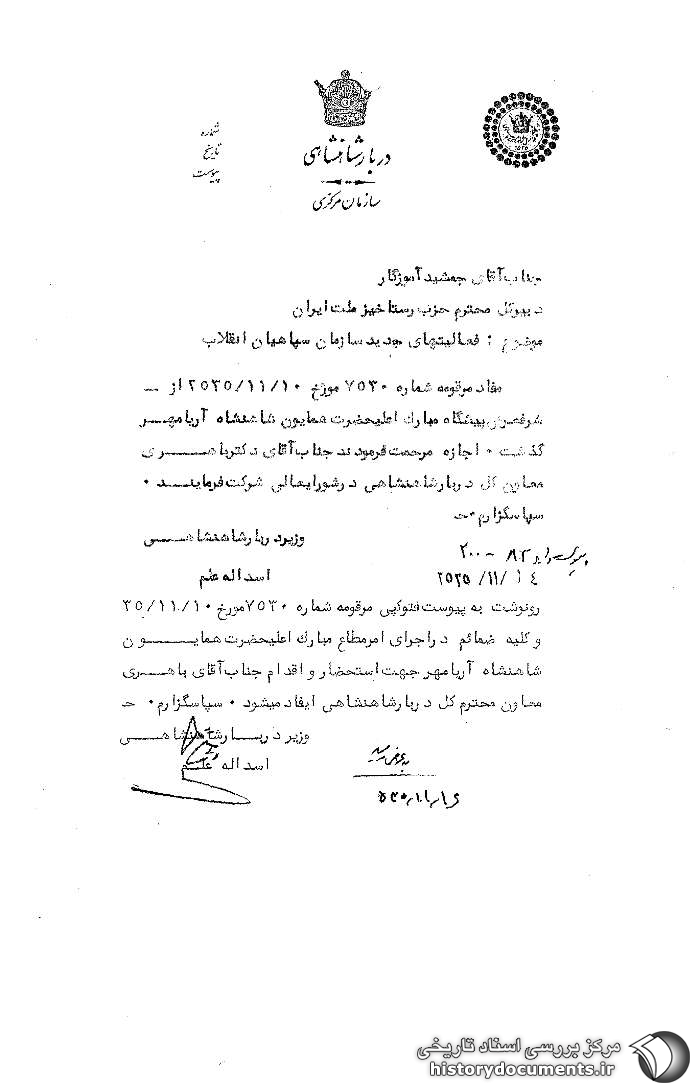 شماره
تاریخ
پیوست
دربار شاهنشاهی
سازمان مرکزی
جناب آقای جمشید آموزگار
دبیرکل محترم حزب رستاخیز ملت ایران
موضوع : فعالیتهای جدید سازمان سپاهیان انقلاب
مفاد مرقومه شماره ۷۵۳۰ مورخ ۲۵۳۵/۱۱/۱۰ از ــ
شرفعرض پیشگاه مبارک اعلیحضرت همایون شاهنشاه آریامهر
گذشت ۰ اجازه مرحمت فرمودند جناب آقای دکتر باهری
معاون کل دربار شاهنشاهی در شورایعالی شرکت فرمایند ۰
سپاسگزارم ۰ ح
وزیر دربار شاهنشاهی
۲۰۰ - ۸۲
اسداله علم
۲۵۳۵/۱۱/۱۴
رونوشت به پیوست فتوکپی مرقومه شماره ۷۵۳۰ مورخ ۳۵/۱۱/۱۰
و کلیه ضمائم در اجرای امر مطاع مبارک اعلیحضرت همایون
شاهنشاه آریامهر جهت استحضار و اقدام جناب آقای باهری
معاون محترم کل دربار شاهنشاهی ایفاد میشود ۰ سپاسگزارم ۰ ح
وزیر دربار شاهنشاهی
اسداله علم
مرکز بررسی اسناد تاریخی
historydocuments.ir